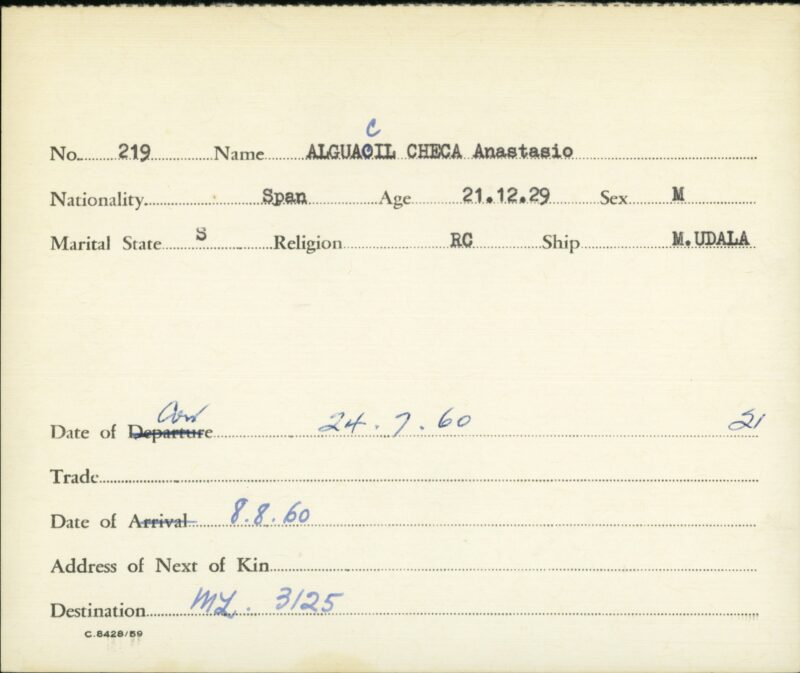 C
No. 219 Name ALGUACIL CHECA Anastasio
Nationality Span Age 21.12.29 Sex M
Marital State S Religion RC Ship M.UDALA
Date of Departure 24.7.60 21
Trade
Date of Arrival 8.8.60
Address of Next of Kin
Destination ML. 3125
C.8428/59